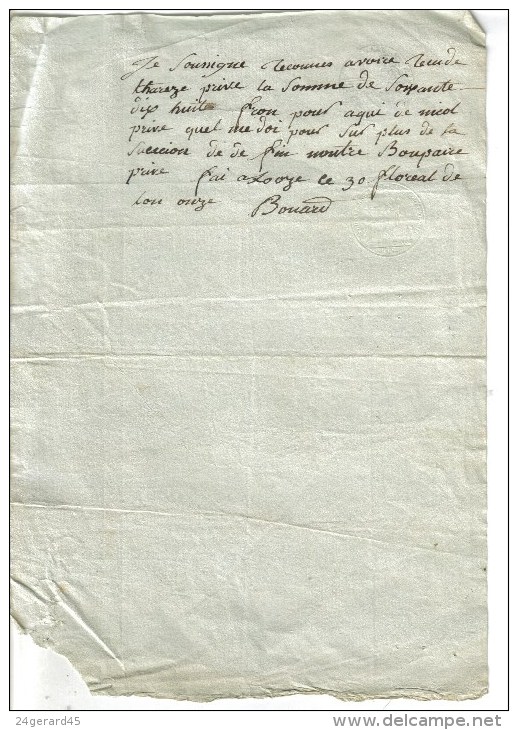 Je Sousigne reconnes avoire recu de
thareze prive la Somme de Soixante
dix huite fron pour aqui de nicol
prive quel me doi pour Sur plus de la
Sucsion de de fin noutre Boupaire
prive fai a ce 30 floreal de
lon onze Bouard
24gerard45
www.delcampe.net